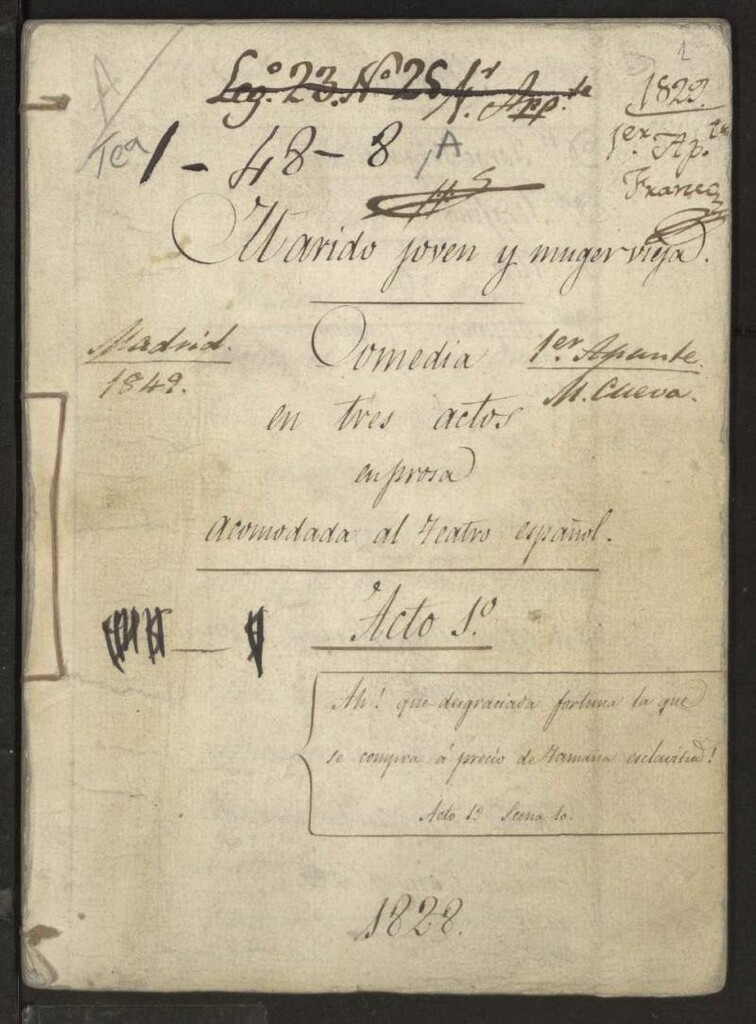 1
Leg.º 23. Nº 25
1829.
A
Tea 1 - 48 - 8, A
1er. Ap.te
Marido joven y muger vieja.
Madrid.
1849.
Comedia
1er. Apunte.
M. Cueva.
en tres actos
en prosa
acomodada al Teatro español.
Acto 1.º
Ah! que desgraciada fortuna la que
se compra á precio de tamaña esclavitud!
Acto 1º Scena 10.
1828.